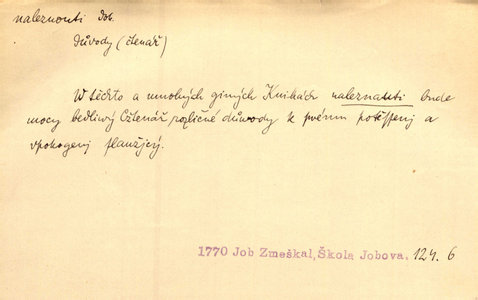 naleznouti dok.
důvody (čtenář)
W těchto a mnohých giných Knihách naleznauti bude
mocy bedliwý Cžtenář rozličné důwody k swému potěssenj a
vpokogenj slaužjcý.
1770 Job Zmeškal, Škola Jobova. 124. 6